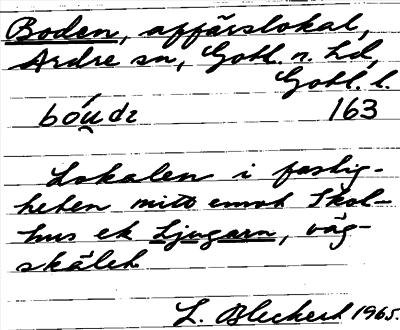 Boden, affärslokal,
Ardre sn, Gotl. n. hd,
Gotl. l.
bóu̯dε 163
Lokalen i fastig-
heten mitt emot Skol-
hus ek Ljugarn, väg-
skälet
L. Bleckert 1965.